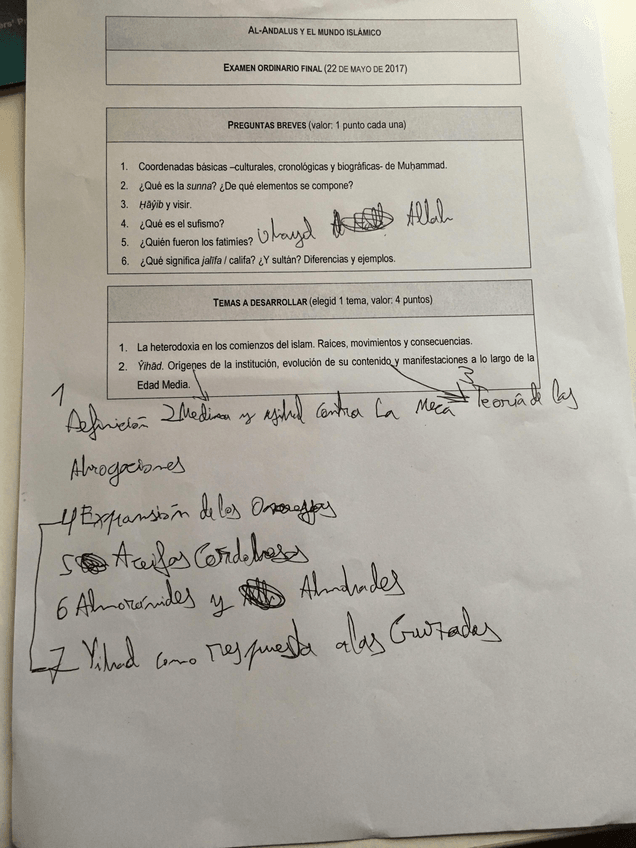 AL-ANDALUS Y EL MUNDO ISLÁMICO
EXAMEN ORDINARIO FINAL (22 DE MAYO DE 2017)
PREGUNTAS BREVES (valor: 1 punto cada una)
1. Coordenadas básicas –culturales, cronológicas y biográficas- de Muḥammad.
2. ¿Qué es la sunna? ¿De qué elementos se compone?
3. Ḥāŷib y visir.
4. ¿Qué es el sufismo?
5. ¿Quién fueron los fatimíes? Ubayd Allah
6. ¿Qué significa jalīfa / califa? ¿Y sultán? Diferencias y ejemplos.
TEMAS A DESARROLLAR (elegid 1 tema, valor: 4 puntos)
1. La heterodoxia en los comienzos del islam. Raíces, movimientos y consecuencias.
2. Ŷihād. Orígenes de la institución, evolución de su contenido y manifestaciones a lo largo de la
Edad Media.
1 Definición 2 Medina y yihad contra La Meca 3 Teoría de las
Abrogaciones
4 Expansión de los
5 Aceifas Cordobesas
6 Almorávides y Almohades
7 Yihad como respuesta a las Cruzadas